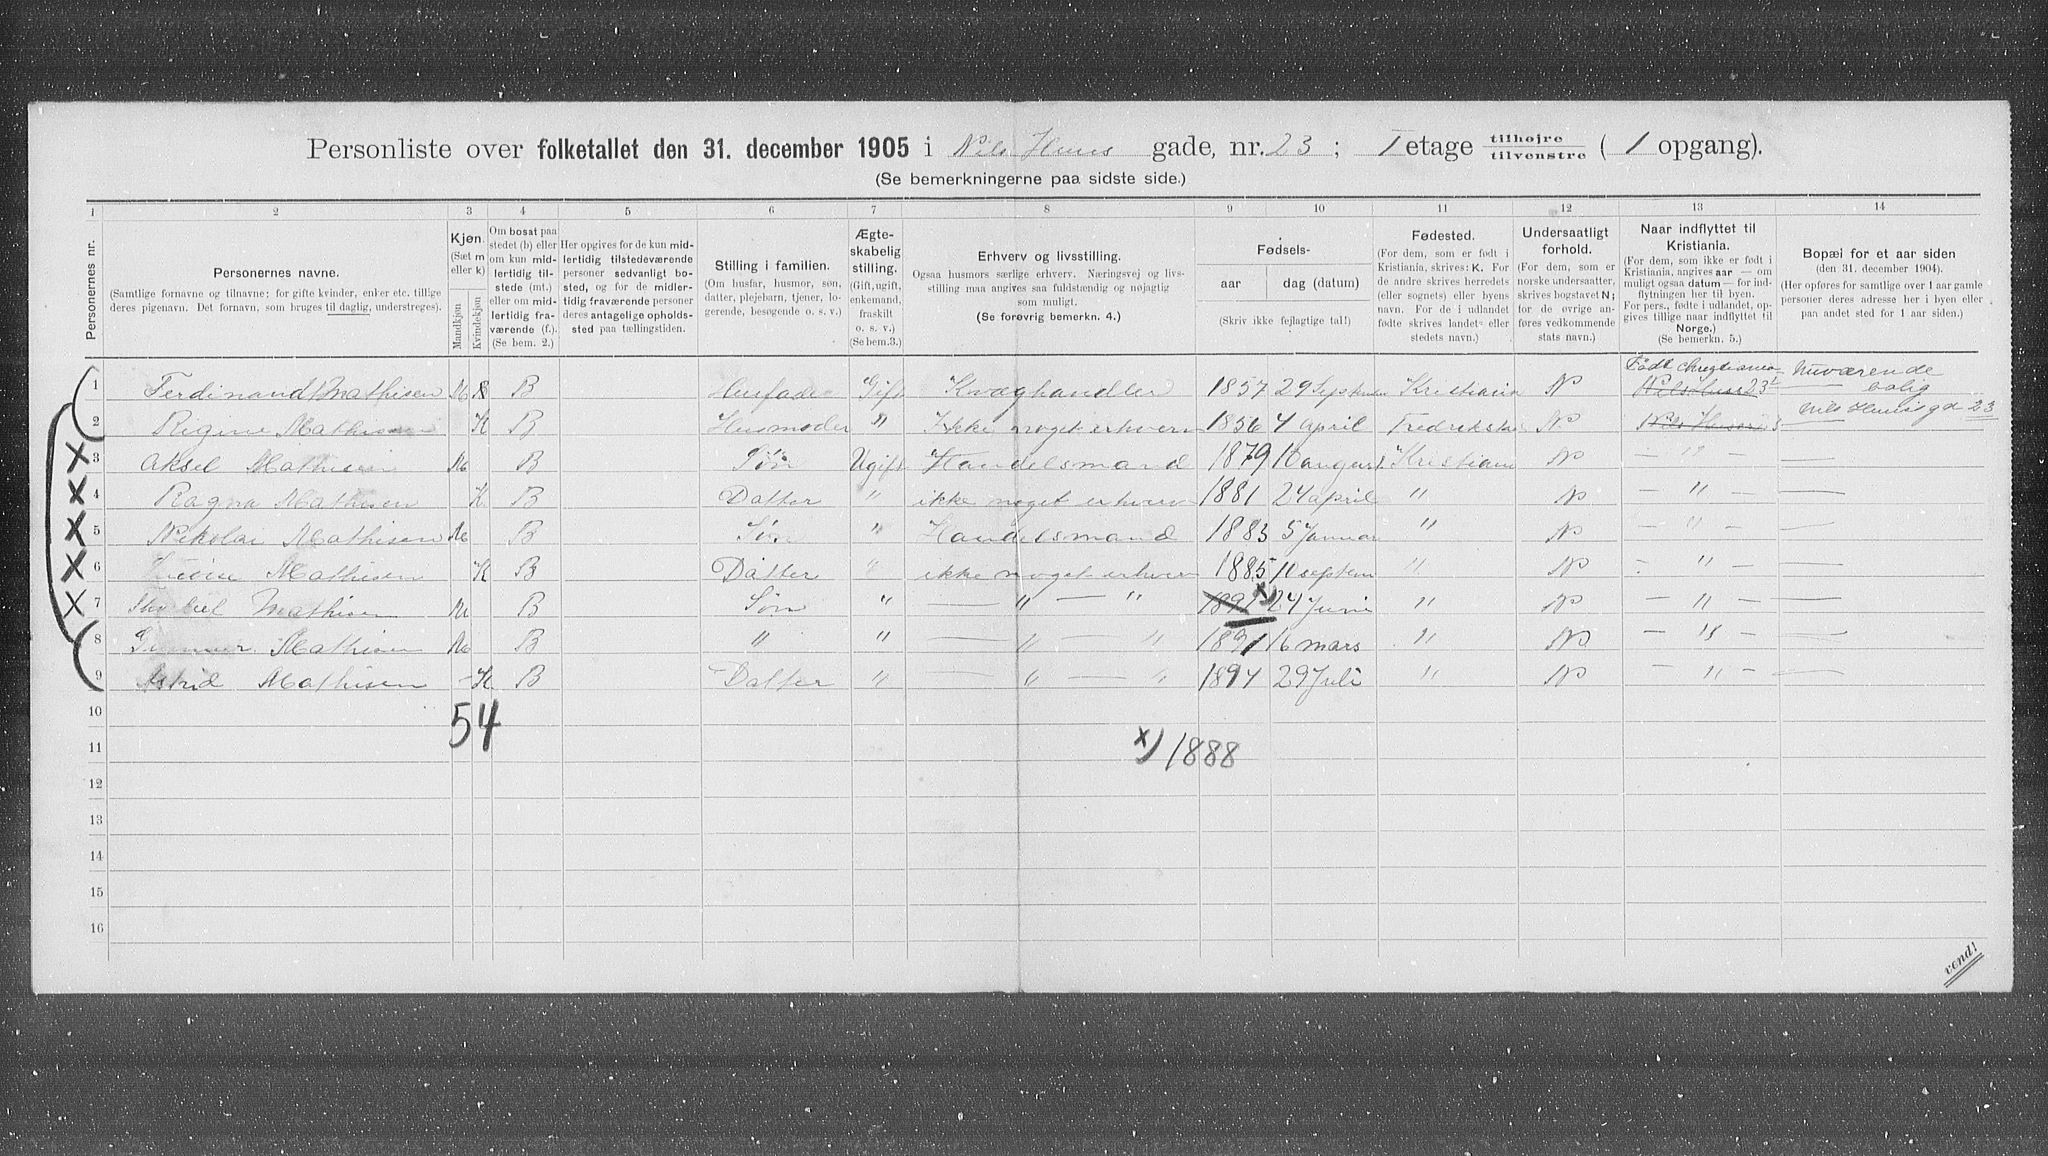 Personliste over folketallet den 31. december 1905 i Nils Huus gade, nr. 23 ; I etage tilhøjre tilvenstre ( 1 opgang).
(Se bemerkningerne paa sidste side.)
1 2 3 4 5 6 7 8 9 10 11 12 13 14
Personernes nr.
Personernes navne.
(Samtlige fornavne og tilnavne; for gifte kvinder, enker etc. tillige deres pigenavn. Det fornavn, som bruges til daglig, understreges).
Kjøn.
(Sæt m eller k)
Mandkjøn
Kvindekjøn
Om bosat paa stedet (b) eller om kun midlertidig tilstede (mt.) eller om midlertidig fraværende (f.).
(Se bem. 2.)
Her opgives for de kun midlertidig tilstedeværende personer sedvanligt bosted, og for de midlertidig fraværende personer deres antagelige opholdssted paa tællingstiden.
Stilling i familien.
(Om husfar, husmor, søn, datter, plejebarn, tjener, logerende, besøgende o. s. v.)
Ægteskabelig stilling.
(Gift, ugift, enkemand, fraskilt o. s. v.)
(Se bem.3.)
Erhverv og livsstilling.
Ogsaa husmors særlige erhverv. Næringsvej og livsstilling maa angives saa fuldstændig og nøjagtig som muligt.
(Se forøvrig bemerkn. 4.)
Fødsels-
aar dag (datum)
(Skriv ikke fejlagtige tal!)
Fødested.
(For dem, som er født i Kristiania, skrives: K. For de andre skrives herredets (eller sognets) eller byens navn. For de i udlandet fødte skrives landets eller stedets navn.)
Undersaatligt forhold.
(For dem, som er norske undersaatter, skrives bogstavet N; for de øvrige anføres vedkommende stats navn.)
Naar indflyttet til Kristiania.
(For dem, som ikke er født i Kristiania, angives aar — om muligt ogsaa datum — for indflytningen her til byen. For pers., fødte i udlandet, opgives tillige naar indflyttet til Norge.)
(Se bemerkn. 5.)
Bopæl for et aar siden
(den 31. december 1904).
(Her opføres for samtlige over 1 aar gamle personer deres adresse her i byen eller paa andet sted for 1 aar siden.)
1 Ferdinand Mathisen M B Husfader Gift Kvæghandler 1857 29 Septem Kristiania N Født Christiania Nils Huus 23 Nuværende bolig
2 Rigine Mathisen K B Husmoder " Ikke noget erhverv 1856 4 april Fredrikst N Nils Huus Nils Huus gd 23
3 Aksel Mathisen M B Søn Ugift Handelsmand 1879 10 august Kristiani N — " — —
4 Ragna Mathisen K B Datter " ikke noget erhverv 1881 24 april " N — " — —
5 Nikolai Mathisen M B Søn " Handelsmand 1883 5 Januar " N — " — —
6 Mathisen K B Datter " ikke noget erhverv 1885 10 septem " N — " — —
7 Mathisen M B Søn " — " — " x) 24 Juni " N — " — —
8 Gunnar Mathisen M B " " — " — " 1891 16 mars " N — " — —
9 Astrid Mathisen K B Datter " — " — " 1894 29 Juli " N " —
10 54
11 x) 1888
12
13
14
15
16
vend!